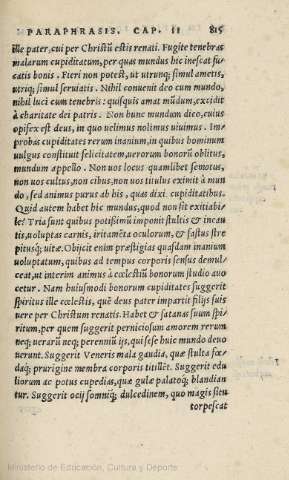 PARAPHRASIS. CAP. II 815
ille pater, cui per Christū estis renati. Fugite tenebras
malarum cupiditatum, per quas mundus hic inescat fu-
catis bonis. Fieri non potest, ut utrunq; simul ametis,
utriq; simul seruiatis. Nihil conuenit deo cum mundo,
nihil luci cum tenebris: quisquis amat mūdum, excidit
à charitate dei patris. Non hunc mundum dico, cuius
opifex est deus, in quo uelimus nolimus uiuimus. Im-
probas cupiditates rerum inanium, in quibus hominum
uulgus constituit felicitatem, uerorum bonorū oblitus,
mundum appello. Non uos locus quamlibet semotus,
non uos cultus, non cibus, non uos titulus eximit à mun
do, sed animus purus ab his, quas dixi cupiditatibus.
Quid autem habet hic mundus, quod non sit exitiabi-
le? Tria sunt quibus potißimū imponit stultis & incau
tis, uoluptas carnis, iritamēta oculorum, & fastus stre
pitusq; uitæ. Obijcit enim præstigias quasdam inanium
uoluptatum, quibus ad tempus corporis sensus demul-
ceat, ut interim animus à cœlestiū bonorum studio auo
cetur. Nam huiusmodi bonorum cupiditates suggerit
spiritus ille cœlestis, quē deus pater impartit filijs suis
uere per Christum renatis. Habet & satanas suum spi-
ritum, per quem suggerit perniciosum amorem rerum
neq; uerarū neq; perenniū ijs, qui sese huic mundo deuo
uerunt. Suggerit Veneris mala gaudia, quæ stulta fœ-
daq; prurigine membra corporis titillēt. Suggerit edu
liorum ac potus cupedias, quæ gulæ palatoq; blandian
tur. Suggerit ocij somniq; dulcedinem, quo magis situ
torpescat
Ministerio de Educación, Cultura y Deporte